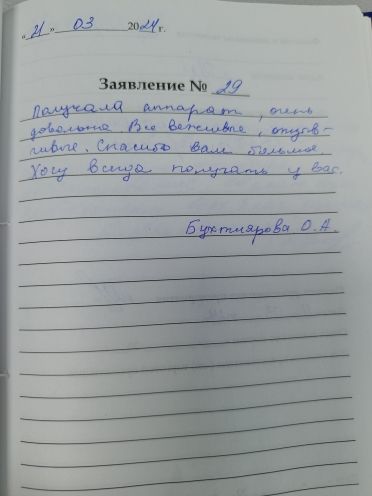 „ 21 " 03 2024 г.
Заявление № 29
Получала аппарат, очень
довольна. Все вежливые, отзыв-
чивые. Спасибо вам большое.
Хочу всегда получать у вас.
Бухтиярова О.А.